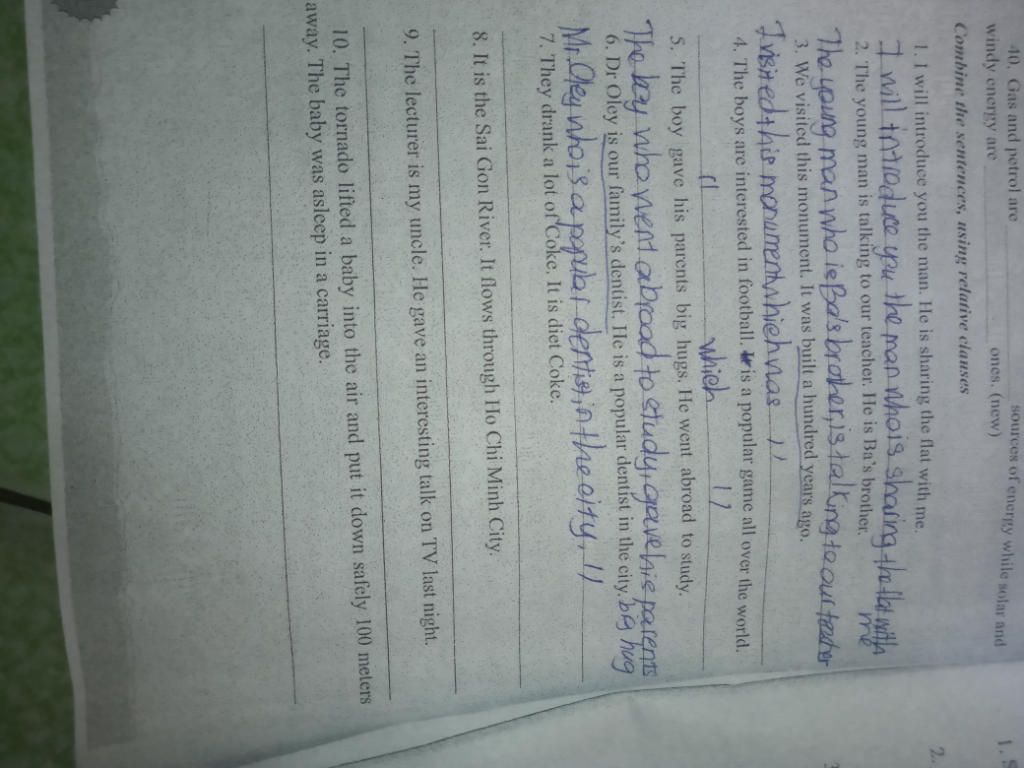 40. Gas and petrol are ________ sources of energy while solar and
windy energy are ________ ones. (new)
Combine the sentences, using relative clauses
1. I will introduce you the man. He is sharing the flat with me.
I will introduce you the man who is sharing the flat with me
2. The young man is talking to our teacher. He is Ba's brother.
The young man who is Ba's brother, is talking to our teacher
3. We visited this monument. It was built a hundred years ago.
I visited this monument which was 11
4. The boys are interested in football. is a popular game all over the world.
11 which 11
5. The boy gave his parents big hugs. He went abroad to study.
The boy who went abroad to study, gave his parents big hug
6. Dr Oley is our family's dentist. He is a popular dentist in the city.
Mr. Oley who is a popular dentist, in the city, 11
7. They drank a lot of Coke. It is diet Coke.
8. It is the Sai Gon River. It flows through Ho Chi Minh City.
9. The lecturer is my uncle. He gave an interesting talk on TV last night.
10. The tornado lifted a baby into the air and put it down safely 100 meters
away. The baby was asleep in a carriage.
1. S
2.